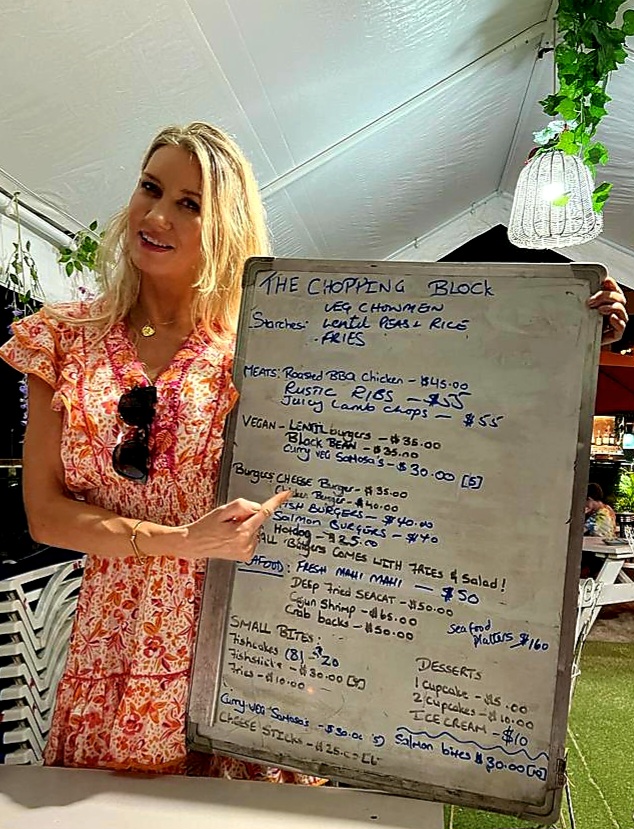 THE CHOPPING BLOCK
VEG CHOWMEIN
Starches: Lentil PEAS & RICE
. FRIES
MEATS: Roasted BBQ Chicken - $45.00
RUSTIC RIBS - $55
Juicy Lamb Chops - $55
VEGAN - LENTIL burgers - $35.00
BLOCK BEAN - $35.00
Curry VEG SAMOSA'S - $30.00 [5]
Burgers CHEESE Burger - $35.00
Chicken Burger - $40.00
FISH BURGERS - $40.00
SALMON BURGERS - $40
Hotdog - $25.00
ALL Burgers COMES WITH FRIES & Salad!
SEAFOOD: FRESH MAHI MAHI - $50
DEEP Fried SEACAT - $50.00
Cajun Shrimp - $65.00
Crab backs - $50.00
seafood
platters $160
SMALL BITES:
Fishcakes (8) - $20
Fishsticks - $30.00
Fries - $10.00
DESSERTS
1 Cupcake - $5.00
2 Cupcakes - $10.00
ICE CREAM - $10
Curry VEG SAMOSA'S - $30.00
CHEESE STICKS - $25.00
Salmon bites $30.00 [10]